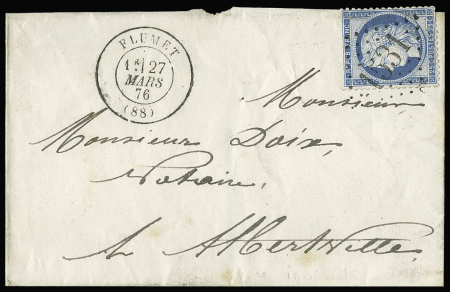 FLUMET
1E 27
MARS
76
(88)
1531
Monsieur
Monsieur Doix,
Notaire,
à Albertville.